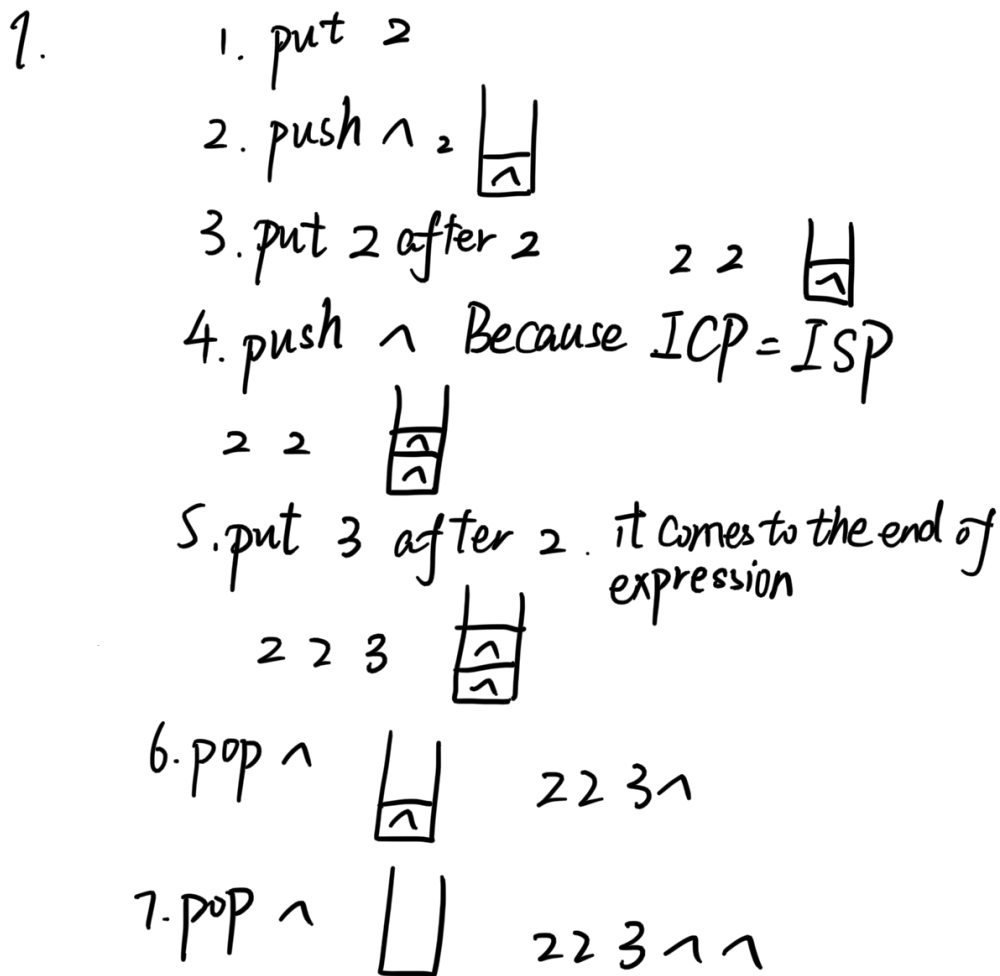 1.
1. put 2
2. push ^ 2
^
3. put 2 after 2 2 2
^
4. push ^ Because ICP = ISP
2 2
^
^
5. put 3 after 2. it comes to the end of
expression
2 2 3
^
^
6. pop ^ 2 2 3 ^
^
7. pop ^ 2 2 3 ^ ^